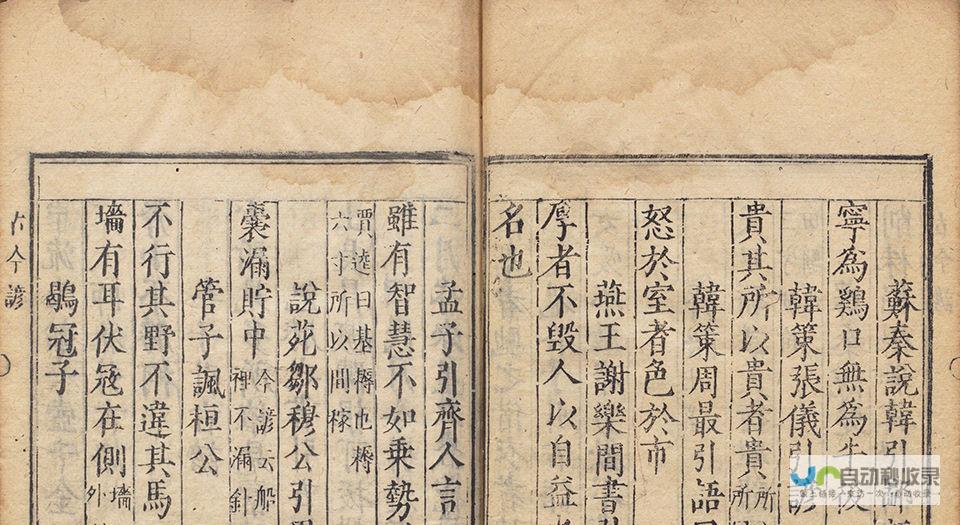 蘇秦說韓引
寧為鷄口無為牛
韓策張儀引諺
貴其所以貴者貴 所 所
韓策周最引語
怒於室者色於市
燕王謝樂間書引
厚者不毀人以自益
名也
孟子引齊人言
雖有智慧不如乘勢
賈逵曰基耨也耨
六寸所以間稼
說苑鄒穆公引
囊漏貯中 今諺云船
裡不漏針
管子諷桓公
不行其野不違其馬
墻有耳伏宼在側 墻
外
鶡冠子
古今諺
自动秒收录